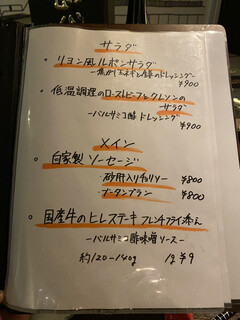 サラダ
・リヨン風ルポンサラダ
¥900
・低温調理のローストビーフとクレソンの
サラダ
ーバルサミコ酢ドレッシングー
¥900
メイン
・自家製 ソーセージ
・砂肝入りチョリソー ¥800
・ブータンブラン ¥800
・国産牛のヒレステーキ フレンチフライ添え
ーバルサミコ酢味噌ソースー
約120-140g